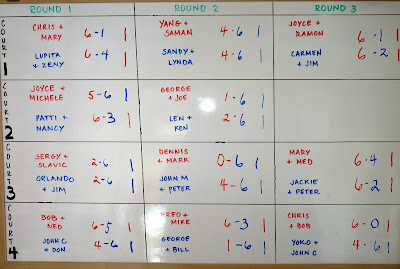 ROUND 1 ROUND 2 ROUND 3
COURT 1
CHRIS + MARY 6-1 |
LUPITA + ZENY 6-4 |
YANG + SAMAN 4-6 |
SANDY + LYNDA 4-6 |
JOYCE + RAMON 6-1 |
CARMEN + JIM 6-2 |
COURT 2
JOYCE + MICHELE 5-6 |
PATTI + NANCY 6-3 |
GEORGE + JOE 1-6 |
LEN + KEN 2-6 |
COURT 3
SERGY + SLAVIC 2-6 |
ORLANDO + JIM 2-6 |
DENNIS + MARK 0-6 |
JOHN M + PETER 4-6 |
MARY + NED 6-4 |
JACKIE + PETER 6-2 |
COURT 4
BOB + NED 6-5 |
JOHN C + DON 4-6 |
FRED + MIKE 6-3 |
GEORGE + BILL 1-6 |
CHRIS + BOB 6-0 |
YOKO + JOHN C 4-6 |